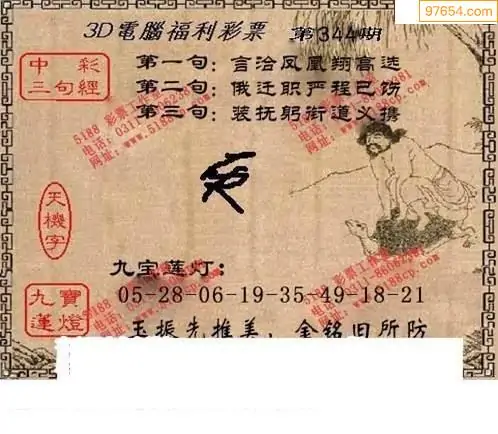 97654.com
3D電腦福利彩票 第344期
中彩
三句經
第一句：言洽凤凰翔高选
第二句：俄迁职严程已饬
第三句：装抚躬衔道义携
5188 彩票工作室
天機字
九宝莲灯：
九寶
蓮燈
05-28-06-19-35-49-18-21
玉振先推美，金铭旧所防